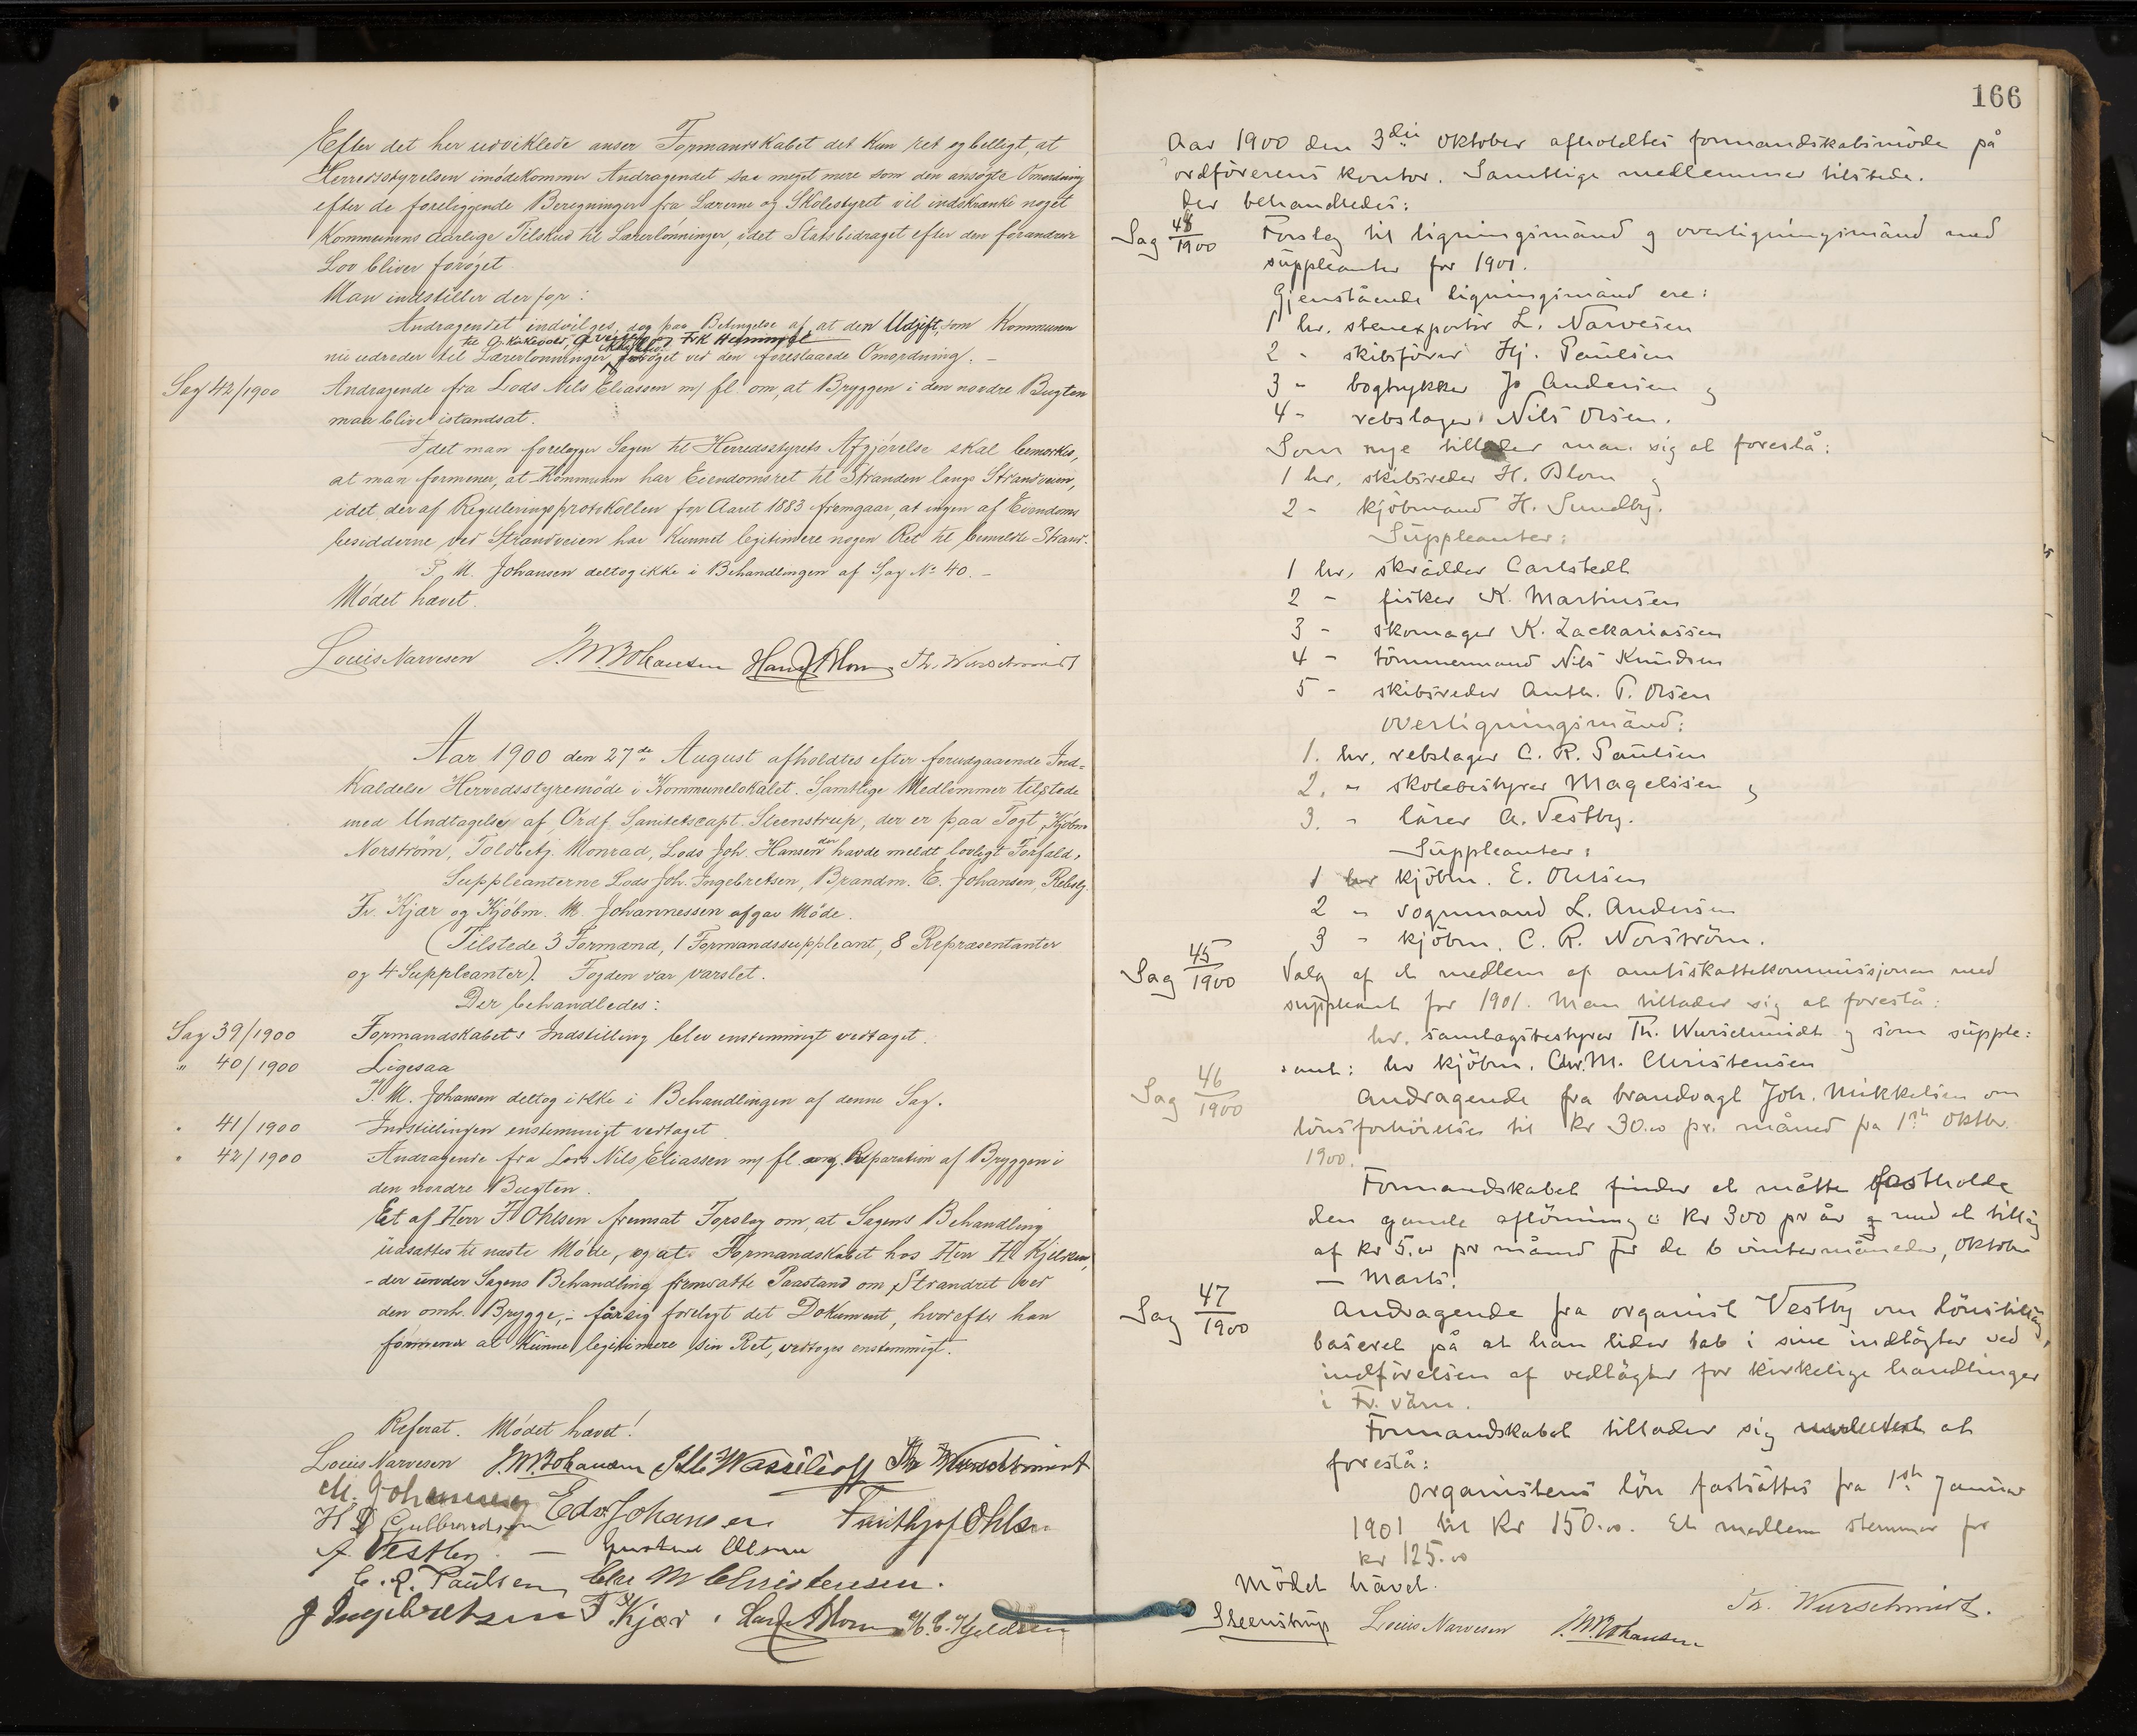 Efter det her udviklede anser Formandskabet det kun ret og billigt, at
Herredsstyrelsen imødekommer Andragendet saa meget mere som den ansøgte Omordning
efter de foreliggende Beregninger fra Lærerne og Skolestyret vil indskrænke noget
Kommunens aarlige Tilskud til Lærerlønninger, idet Statsbidraget efter den forandrede
Lov bliver forøget.
Man indstiller derfor:
Andragendet indvilges, dog paa Betingelse af, at den Udgift, som Kommunen
til og Frk Henningse
nu udreder til Lærerlønninger, ikke bliver forøget ved den foreslaaede Omordning. -
Sag 42/1900 Andragende fra Lods Nils Eliassen m/ fl. om, at Bryggen i den nordre Bugten
maa blive istandsat.
Idet man forelægger Sagen til Herredsstyrets Afgjørelse skal bemerkes,
at man formener, at Kommunen har Eiendomsret til Stranden langs Strandveien,
idet der af Reguleringsprotokollen for Aaret 1883 fremgaar, at ingen af Eiendoms
besidderne ved Strandveien har kunnet legitimere nogen Ret til bemeldte Strand.
P. M. Johansen deltog ikke i Behandlingen af Sag No 40. -
Mødet hævet.
Louis Narvesen P.M. Johansen Hans Blom Th. Wurschmidt
Aar 1900 den 27de August afholdtes efter forudgaaende Ind=
kaldelse Herredsstyremöde i Kommunelokalet. Samtlige Medlemmer tilstede
med Undtagelse af Ordf. Sanitetscapt. Steenstrup, der er paa Togt, Kjöbm
Norström, Toldbetj. Monrad, Lods Joh. Hansen der havde meldt lovligt Forfald,
Suppleanterne Lods Joh. Ingebretsen, Brandm. E. Johansen, Rebslg.
Fr. Kjær og Kjöbm. M. Johannessen afgav Möde.
(Tilstede 3 Formænd, 1 Formandssuppleant, 8 Repræsentanter
og 4 Suppleanter). Fogden var varslet.
Der behandledes:
Sag 39/1900 Formandskabets Indstilling blev enstemmigt vedtaget.
" 40/1900 Ligesaa
P. M. Johansen deltog ikke i Behandlingen af denne Sag.
" 41/1900 Indstillingen enstemmigt vedtaget
" 42/1900 Andragende fra Lods Nils Eliassen m/ fl. ang. Reparation af Bryggen i
den nordre Bugten.
Et af Herr F Ohlsen fremsat Forslag om, at Sagens Behandling
udsattes til næste Möde, og at Formandskabet hos Herr H. Kjeldsen,
- der under Sagens Behandling fremsatte Paastand om Strandret ved
den omh. Brygge, - får sig forelagt det Dokument, hvorefter han
formener at kunne legitimere sin Ret, vedtoges enstemmigt.
Referat. Mødet hævet!
Louis Narvesen P.M. Johansen Wassilioff Th Wurschmidt
M. Johannessen Edv. Johansen Frithjof Ohlsen
H D Gulbrandsen
A Vestby. - Gustav Olsen
C. R. Paulsen Chr M Christensen.
J Ingebretsen F Kjær. Hans Blom H. C. Kjeldsen
166
Aar 1900 den 3die oktober afholdtes formandskabsmöde på
ordförerens kontor. Samtlige medlemmer tilstede.
Der behandledes:
Sag 48/1900 Forslag til ligningsmänd og overligningsmänd med
suppleanter for 1901.
Gjenstående ligningsmänd ere:
1 hr. stenexportör L. Narvesen
2 - skibsförer Hj. Paulsen
3 - bogtrykker Jo Andersen og
4 - rebslager Nils Olsen.
Som nye tillader man sig at foreslå:
1 hr. skibsreder H. Blom og
2 - kjöbmand H. Sundby.
Suppleanter:
1 hr. skrädder Carlstedt
2 - fisker K. Martinsen
3 - skomager K. Zackariassen
4 - tömmermand Nils Knudsen
5 - skibsreder Anth. T. Olsen
Overligningsmänd:
1. hr. rebslager C. R. Paulsen
2. " skolebestyrer Magelssen og
3. - lärer A. Vestby.
Suppleanter:
1 hr kjöbm. E. Ohlsen
2 " vognmand L. Andersen
3 - kjöbm. C. R. Norström.
Sag 45/1900 Valg af et medlem af amtsskattekommissjonen med
suppleant for 1901. Man tillader sig at foreslå:
hr. samlagsbestyrer Th. Wurschmidt og som supple=
ant: hr kjöbm. Chr. M. Christensen
Sag 46/1900 Andragende fra brandvagt Joh. Mikkelsen om
lönsforhöielse til kr 30.00 pr. måned fra 1st oktbr.
1900.
Formandskabet finder at måtte fastholde
den gamle aflönning a kr 300 pr år og med et tilläg
af kr 5.00 pr måned for de 6 vintermåneder, oktober
- Marts.
Sag 47/1900 Andragende fra organist Vestby om lönstilläg,
baseret på at han lider tab i sine indtägter ved
indförelsen af vedtägter for kirkelige handlinger
i Fr. värn.
Formandskabet tillader sig at
foreslå:
Organistens lön fastsättes fra 1st Januar
1901 til kr 150.00. Et medlem stemmer for
kr 125.00
Mödet hävet.
Steenstrup Louis Narvesen P.M. Johansen Th. Wurschmidt.